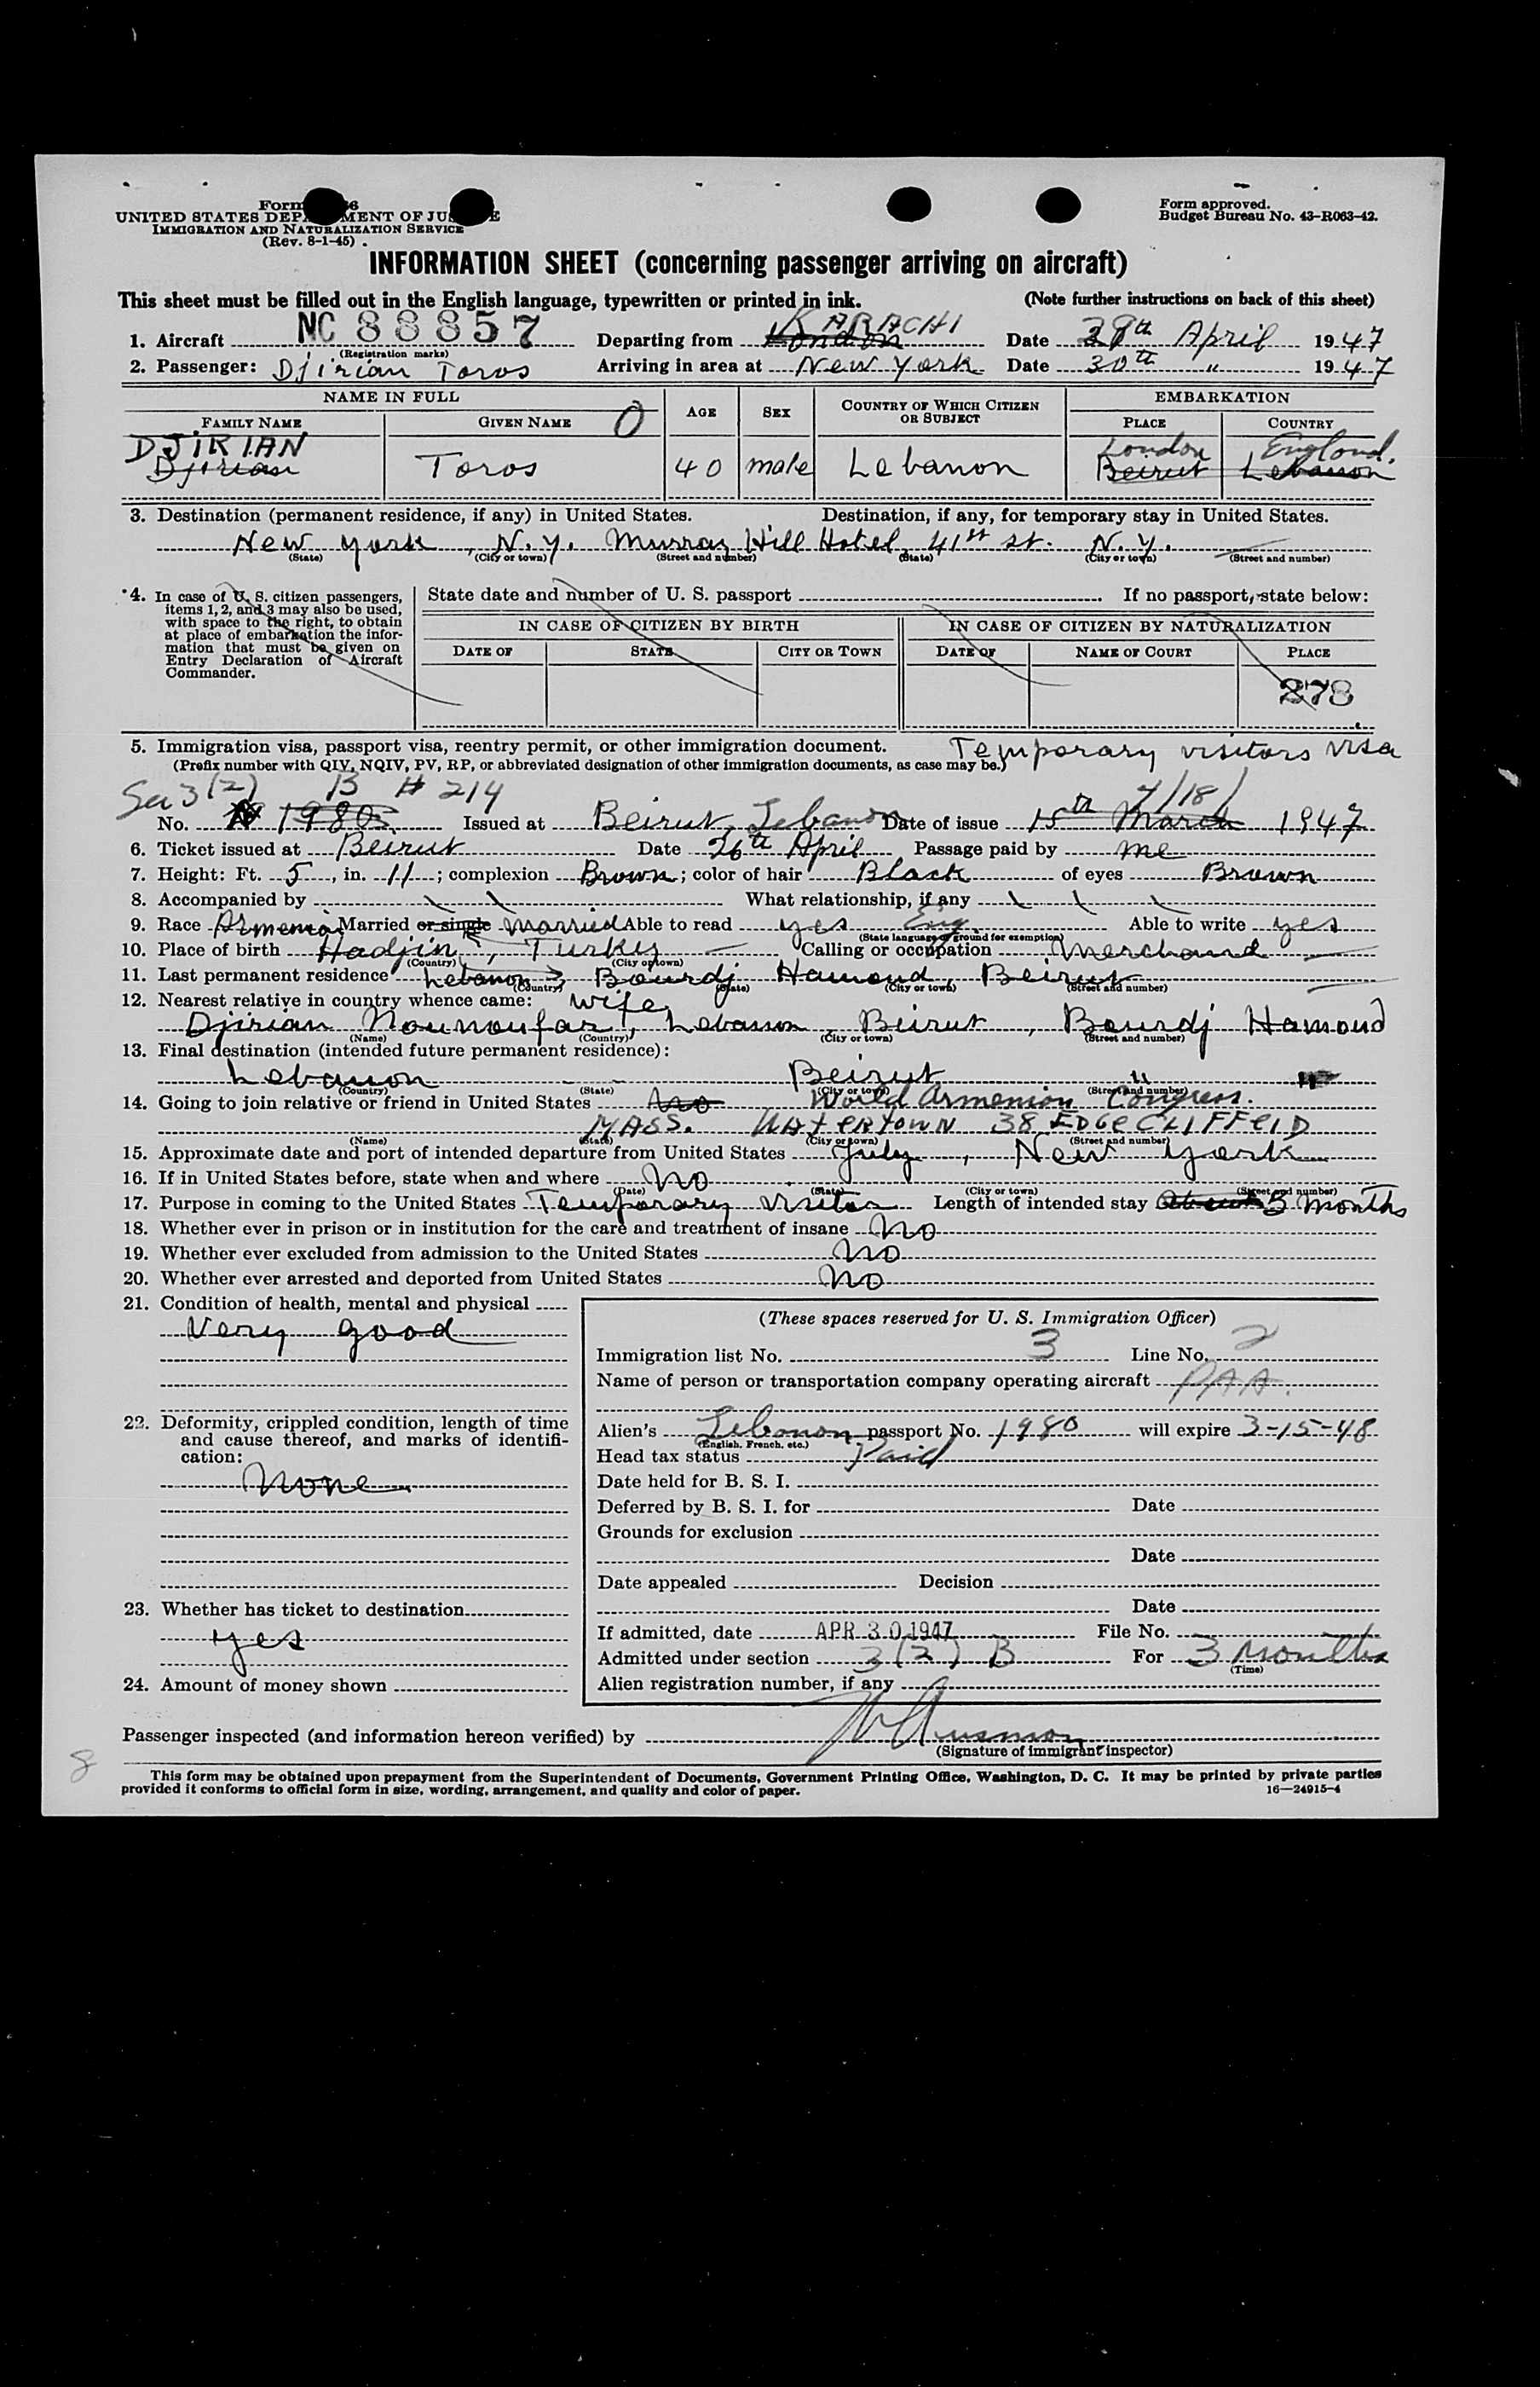 Form
UNITED STATES DEPARTMENT OF JUSTICE
IMMIGRATION AND NATURALIZATION SERVICE
(Rev. 8-1-45)
Form approved.
Budget Bureau No. 43-R063-42.
INFORMATION SHEET (concerning passenger arriving on aircraft)
This sheet must be filled out in the English language, typewritten or printed in ink. (Note further instructions on back of this sheet)
1. Aircraft NC 88857 Departing from London KARACHI Date 28th April 1947
(Registration marks)
2. Passenger: Djirian Toros Arriving in area at New York Date 30th " 1947
NAME IN FULL AGE SEX COUNTRY OF WHICH CITIZEN OR SUBJECT EMBARKATION
FAMILY NAME GIVEN NAME 0 PLACE COUNTRY
DJIRIAN London England.
Djirian Toros 40 male Lebanon Beirut Lebanon
3. Destination (permanent residence, if any) in United States. Destination, if any, for temporary stay in United States.
New York, N.Y. Murray Hill Hotel, 41st st. N.Y.
(State) (City or town) (Street and number) (State) (City or town) (Street and number)
*4. In case of U. S. citizen passengers, items 1, 2, and 3 may also be used, with space to the right, to obtain at place of embarkation the information that must be given on Entry Declaration of Aircraft Commander.
State date and number of U. S. passport If no passport, state below:
IN CASE OF CITIZEN BY BIRTH IN CASE OF CITIZEN BY NATURALIZATION
DATE OF STATE CITY OR TOWN DATE OF NAME OF COURT PLACE
278
5. Immigration visa, passport visa, reentry permit, or other immigration document. Temporary visitors visa
(Prefix number with QIV, NQIV, PV, RP, or abbreviated designation of other immigration documents, as case may be.)
Sec 3(2) B # 214 4/18/
No. 1980 Issued at Beirut, Lebanon Date of issue 15th March 1947
6. Ticket issued at Beirut Date 26th April Passage paid by me
7. Height: Ft. 5, in. 11; complexion Brown; color of hair Black of eyes Brown
8. Accompanied by What relationship, if any
9. Race Armenian Married or single married Able to read yes Eng Able to write yes
(State language or ground for exemption)
10. Place of birth Hadjin, Turkey Calling or occupation Merchand
(Country) (City or town)
11. Last permanent residence Lebanon Bourdj Hamoud Beirut
(Country) (State) (City or town) (Street and number)
12. Nearest relative in country whence came: wife
Djirian Nounoufar, Lebanon, Beirut, Bourdj Hamoud
(Name) (Country) (City or town) (Street and number)
13. Final destination (intended future permanent residence):
Lebanon Beirut "
(Country) (State) (City or town) (Street and number)
14. Going to join relative or friend in United States no World Armenian Congress.
MASS. WATERTOWN 38 EDGECLIFFEID
(Name) (State) (City or town) (Street and number)
15. Approximate date and port of intended departure from United States July, New York
16. If in United States before, state when and where No
(Date) (State) (City or town) (Street and number)
17. Purpose in coming to the United States Temporary Visitor Length of intended stay about 3 months
18. Whether ever in prison or in institution for the care and treatment of insane No
19. Whether ever excluded from admission to the United States No
20. Whether ever arrested and deported from United States No
21. Condition of health, mental and physical
Very good
22. Deformity, crippled condition, length of time and cause thereof, and marks of identification:
None
23. Whether has ticket to destination
yes
24. Amount of money shown
(These spaces reserved for U. S. Immigration Officer)
Immigration list No. 3 Line No. 2
Name of person or transportation company operating aircraft PAA.
Alien's Lebanon passport No. 1980 will expire 3-15-48
(English, French, etc.)
Head tax status Paid
Date held for B. S. I.
Deferred by B. S. I. for Date
Grounds for exclusion
Date
Date appealed Decision
Date
If admitted, date APR 30 1947 File No.
Admitted under section 3(2) B For 3 Months
(Time)
Alien registration number, if any
Passenger inspected (and information hereon verified) by
(Signature of immigrant inspector)
8
This form may be obtained upon prepayment from the Superintendent of Documents, Government Printing Office, Washington, D. C. It may be printed by private parties
provided it conforms to official form in size, wording, arrangement, and quality and color of paper. 16—24915-4